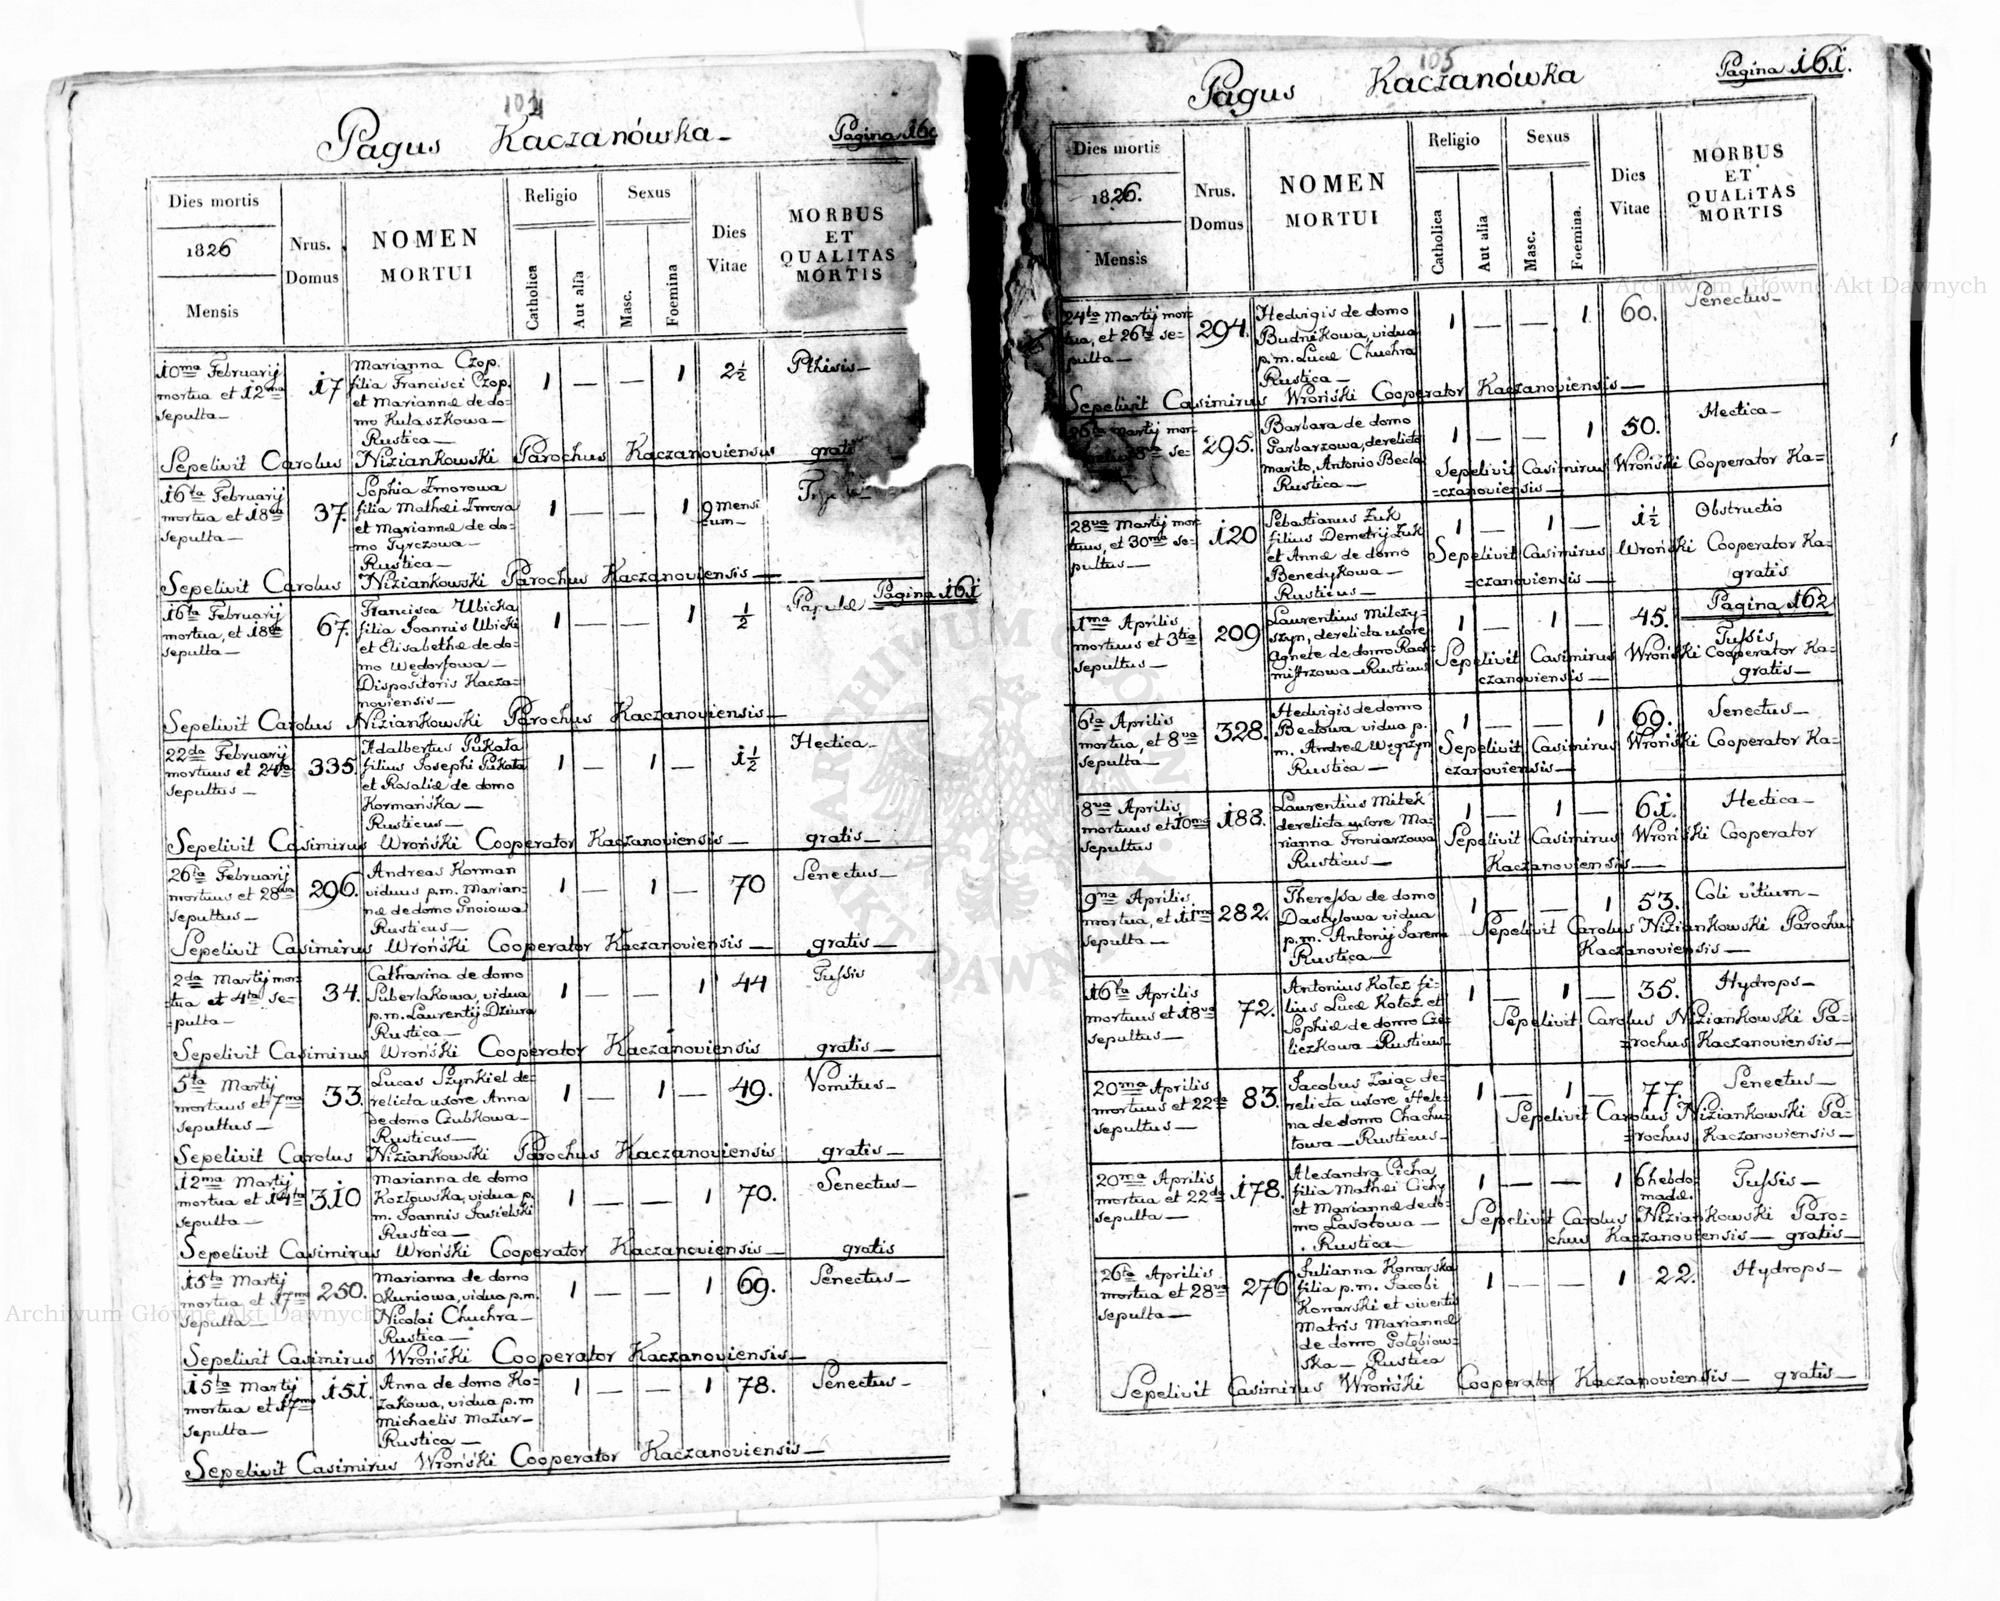 104
Pagus Kaczanówka
Pagina 160
Dies mortis
1826
Mensis
Nrus.
Domus
NOMEN
MORTUI
Religio
Catholica
Aut alia
Sexus
Masc.
Foemina
Dies
Vitae
MORBUS
ET
QUALITAS
MORTIS
10ma Februarij
mortua et 12ma
sepulta
17
Marianna Czop
filia Francisci Czop
et Mariannæ de do=
mo Kulaszkowa
Rustica
1 — — 1
2½
Pthisis
Sepelivit Carolus Niziankowski Parochus Kaczanoviensis gratis
16ta Februarij
mortua et 18va
sepulta
37.
Sophia Zmorowa
filia Mathæi Zmora
et Mariannæ de do=
mo Tyrczowa
Rustica
1 — — 1
9 mensi
um
Sepelivit Carolus Niziankowski Parochus Kaczanoviensis
Pagina 161
16ta Februarij
mortua, et 18va
sepulta
67.
Francisca Ubicka
filia Joannis Ubicki
et Elisabethæ de do=
mo Wędorfowa
Dispositoris Kacza=
noviensis
1 — — 1
½
Papulæ
Sepelivit Carolus Niziankowski Parochus Kaczanoviensis
22da Februarij
mortuus et 24ta
sepultus
335.
Adalbertus Pukata
filius Josephi Pukata
et Rosaliæ de domo
Kormańska
Rusticus
1 — 1 —
1½
Hectica
Sepelivit Casimirus Wroński Cooperator Kaczanoviensis gratis
26ta Februarij
mortuus et 28va
sepultus
296.
Andreas Korman
viduus p.m. Marian=
næ de domo Gnoiowa
Rusticus
1 — 1 —
70
Senectus
Sepelivit Casimirus Wroński Cooperator Kaczanoviensis gratis
2da Martij mor=
tua et 4ta se=
pulta
34.
Catharina de domo
Puberlakowa, vidua
p.m. Laurentij Dziura
Rustica
1 — — 1
44
Tussis
Sepelivit Casimirus Wroński Cooperator Kaczanoviensis gratis
5ta Martij
mortuus et 7ma
sepultus
33.
Lucas Szynkiel de=
relicta uxore Anna
de domo Czubkowa
Rusticus
1 — 1 —
49.
Vomitus
Sepelivit Carolus Niziankowski Parochus Kaczanoviensis gratis
12ma Martij
mortua et 14ta
sepulta
310
Marianna de domo
Kozłowska, vidua p.
m. Joannis Jasielski
Rustica
1 — — 1
70.
Senectus
Sepelivit Casimirus Wroński Cooperator Kaczanoviensis gratis
15ta Martij
mortua et 17ma
sepulta
250.
Marianna de domo
Okuniowa, vidua p.m.
Nicolai Chuchra
Rustica
1 — — 1
69.
Senectus
Sepelivit Casimirus Wroński Cooperator Kaczanoviensis
15ta Martij
mortua et 17ma
sepulta
151.
Anna de domo Ko=
zakowa, vidua p.m
Michaelis Mazur
Rustica
1 — — 1
78.
Senectus
Sepelivit Casimirus Wroński Cooperator Kaczanoviensis
105
Pagus Kaczanówka
Pagina 161.
Dies mortis
1826.
Mensis
Nrus.
Domus
NOMEN
MORTUI
Religio
Catholica
Aut alia
Sexus
Masc.
Foemina.
Dies
Vitae
MORBUS
ET
QUALITAS
MORTIS
24ta Martij mor
tua, et 26ta se=
pulta
294.
Hedvigis de domo
Budnikowa, vidua
p.m. Lucæ Chuchra
Rustica
1 — — 1
60.
Senectus
Sepelivit Casimirus Wroński Cooperator Kaczanoviensis
26ta Martij mor
295.
Barbara de domo
Garbarzowa, derelicto
marito, Antonio Becla
Rustica
1 — — 1
50.
Hectica
Sepelivit Casimirus Wroński Cooperator Ka=
=czanoviensis
28va Martij mor
tuus, et 30ma se=
pultus
120
Sebastianus Zuk
filius Demetrij Zuk
et Annæ de domo
Benedykowa
Rusticus
1 — 1 —
1½
Obstructio
Sepelivit Casimirus Wroński Cooperator Ka=
=czanoviensis gratis
Pagina 162
1ma Aprilis
mortuus et 3tia
sepultus
209
Laurentius Milczy=
szyn, derelicta uxore
Agnete de domo Rach
mistrzowa Rusticus
1 — 1 —
45.
Tussis
Sepelivit Casimirus Wroński Cooperator Ka=
czanoviensis gratis
6ta Aprilis
mortua, et 8va
sepulta
328.
Hedvigis de domo
Bectowa vidua p.
m. Andreæ Węgrzyn
Rustica
1 — — 1
69.
Senectus
Sepelivit Casimirus Wroński Cooperator Ka=
czanoviensis
8va Aprilis
mortuus et 10ma
sepultus
183.
Laurentius Mitek
derelicta uxore Ma=
rianna Froniarzowa
Rusticus
1 — 1 —
61.
Hectica
Sepelivit Casimirus Wroński Cooperator
Kaczanoviensis
9na Aprilis
mortua, et 11ma
sepulta
282.
Theressa de domo
Dastylowa vidua
p.m. Antonij Jarema
Rustica
1 — — 1
53.
Coli vitium
Sepelivit Carolus Niziankowski Parochus
Kaczanoviensis
16ta Aprilis
mortuus et 18va
sepultus
72.
Antonius Kotcz fi=
lius Lucæ Kotcz et
Sophiæ de domo Cze=
liczkowa Rusticus
1 — 1 —
35.
Hydrops
Sepelivit Carolus Niziankowski Pa=
=rochus Kaczanoviensis
20ma Aprilis
mortuus et 22da
sepultus
83.
Jacobus Zaiąc de=
relicta uxore Hele=
na de domo Chachu=
towa Rusticus
1 — 1 —
77.
Senectus
Sepelivit Carolus Niziankowski Pa=
=rochus Kaczanoviensis
20ma Aprilis
mortua et 22da
sepulta
178.
Alexandra Cicha
filia Mathæi Cichy
et Mariannæ de do=
mo Lasotowa
Rustica
1 — — 1
6 hebdo
madæ.
Tussis
Sepelivit Carolus Niziankowski Paro=
chus Kaczanoviensis gratis
26ta Aprilis
mortua et 28va
sepulta
276
Julianna Konarska
filia p.m. Jacobi
Konarski et viventis
Matris Mariannæ
de domo Gołębiow=
ska Rustica
1 — — 1
22.
Hydrops
Sepelivit Casimirus Wroński Cooperator Kaczanoviensis gratis
Archiwum Główne Akt Dawnych
Archiwum Główne Akt Dawnych
ARCHIWUM GŁÓWNE AKT DAWNYCH